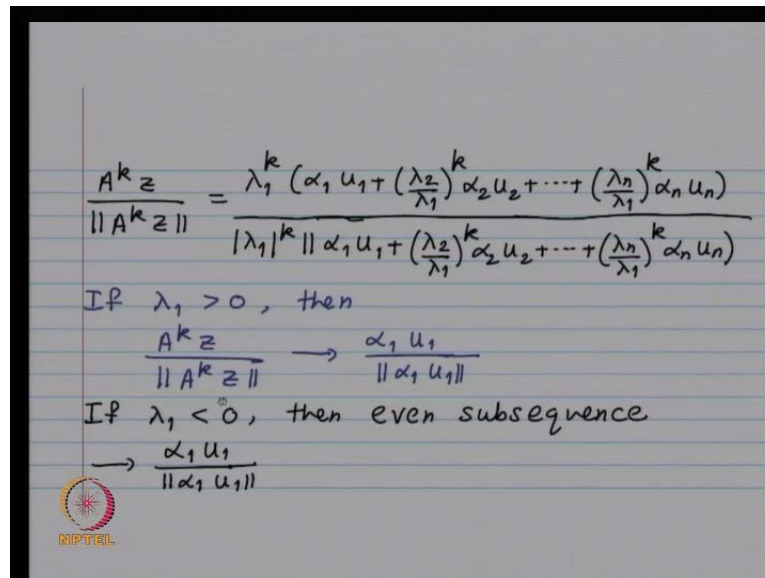 A^k z / ||A^k z|| = λ₁^k (α₁ u₁ + (λ₂/λ₁)^k α₂ u₂ + ⋯ + (λₙ/λ₁)^k αₙ uₙ) / |λ₁|^k || α₁ u₁ + (λ₂/λ₁)^k α₂ u₂ + ⋯ + (λₙ/λ₁)^k αₙ uₙ)
If λ₁ > 0, then
A^k z / ||A^k z|| → α₁ u₁ / ||α₁ u₁||
If λ₁ < 0, then even subsequence
→ α₁ u₁ / ||α₁ u₁||
NPTEL